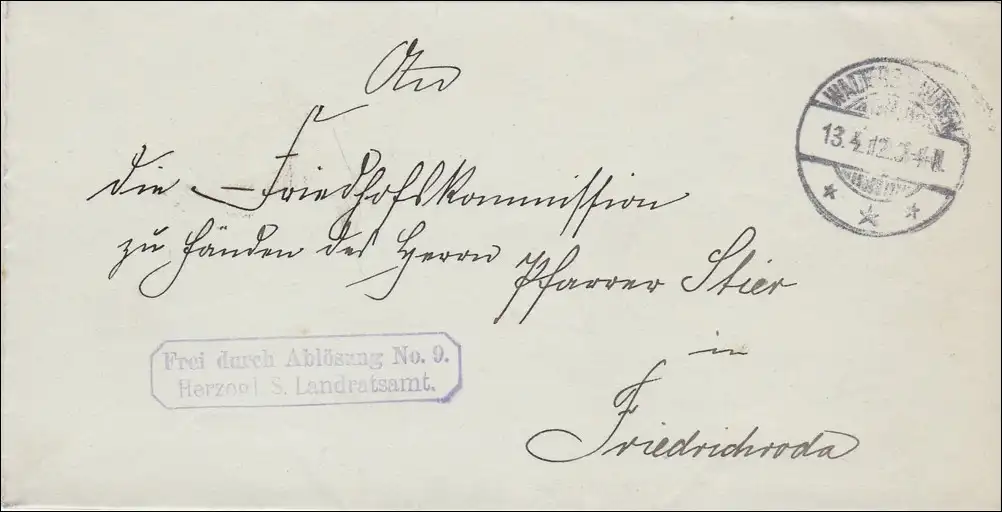 An
die Friedhofskommission
zu Händen des Herrn Pfarrer Stier
in
Friedrichroda
Frei durch Ablösung No. 9.
Herzogl. S. Landratsamt.
WALTERSHAUSEN
13.4.12.3-4 N.